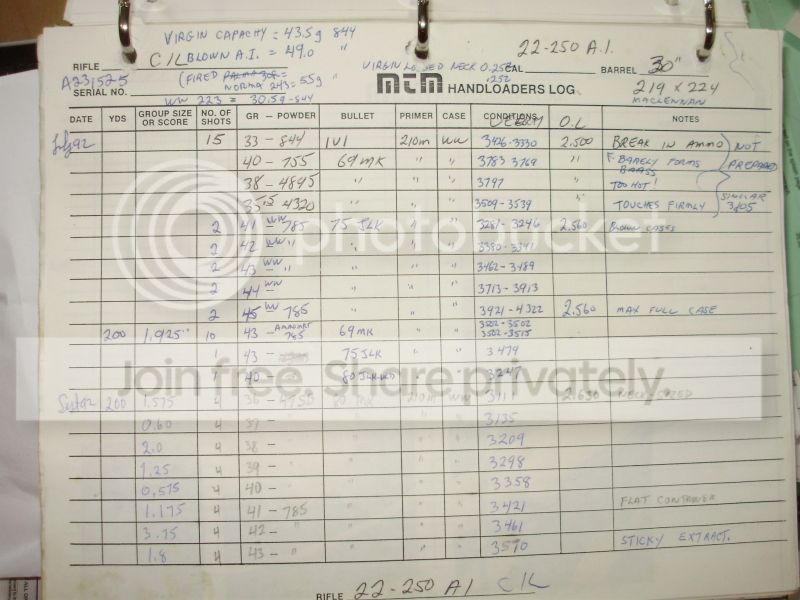 VIRGIN CAPACITY = 43.5g 844
RIFLE C/L BLOWN A.I. = 49.0 " 22-250 A.I.
VIRGIN NECK 0.253 CAL BARREL 30"
A231525 (FIRED NORMA 243 = 55g .252
SERIAL NO. MTM HANDLOADERS LOG 219 X 224
WW 223 = 30.5g-844 MACLENNAN
DATE YDS GROUP SIZE OR SCORE NO. OF SHOTS GR — POWDER BULLET PRIMER CASE CONDITIONS O.L NOTES
July 92 15 33 - 844 1V1 210m WW 3426-3330 2.500 BREAK IN AMMO NOT
40 - 755 69 MK " " 3783 3769 " F. BARELY FORMS BRASS PREPARED
38 - 4895 " " " 3797 TOO HOT!
35.5 4320 " " " 3509-3539 TOUCHES FIRMLY SIMILAR 3805
2 41 - WW 785 75 JLK " " 3281-3246 2.560 BLOWN CASES
2 42 - WW " " " " 3380-3341
2 43 - WW " " " " 3462-3489
2 44 - WW " " " 3713-3913
2 45 WW 785 " " " 3921-4322 2.560 MAX FULL CASE
200 1.925" 10 43 - 785 69 MK " " 3502-3502
3502-3515
1 43 - 75 JLK " " 3479
1 40 - 80 JLK " " 3247
Sept 92 200 1.575 4 210m WW 2.630 NECK SIZED
0.60 4 37 - " " " " 3135
2.0 4 38 - " " " " 3209
1.25 4 39 - " " " " 3298
0.575 4 40 - " " " " 3358
1.175 4 41 - 785 " " " 3421 FLAT CONTROVER
3.75 4 42 - " " " " 3461
1.8 4 43 - " " " " 3570 STICKY EXTRACT.
RIFLE 22-250 AI C/L
photobucket
Join free. Share privately